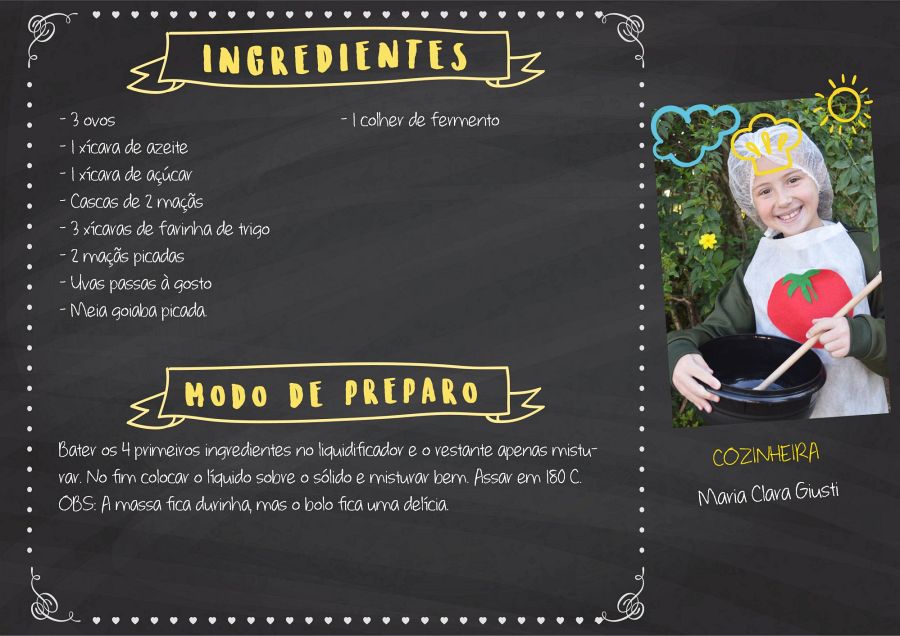 INGREDIENTES
- 3 ovos
- 1 xícara de azeite
- 1 xícara de açúcar
- Cascas de 2 maçãs
- 3 xícaras de farinha de trigo
- 2 maçãs picadas
- Uvas passas à gosto
- Meia goiaba picada.
- 1 colher de fermento
MODO DE PREPARO
Bater os 4 primeiros ingredientes no liquidificador e o restante apenas mistu-
rar. No fim colocar o líquido sobre o sólido e misturar bem. Assar em 180 C.
OBS: A massa fica durinha, mas o bolo fica uma delícia.
COZINHEIRA
Maria Clara Giusti